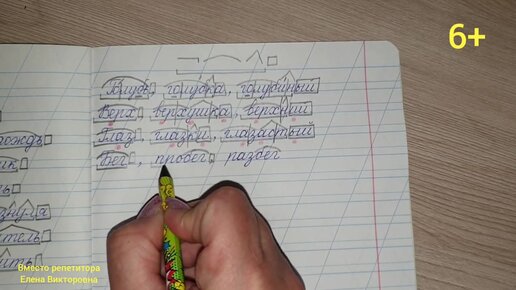 6+
Голубь, голубка, голубиный
Верх, верхушка, верхний
Глаз, глазки, глазастый
Бег, пробег, разбег
Вместо репетитора
Елена Викторовна